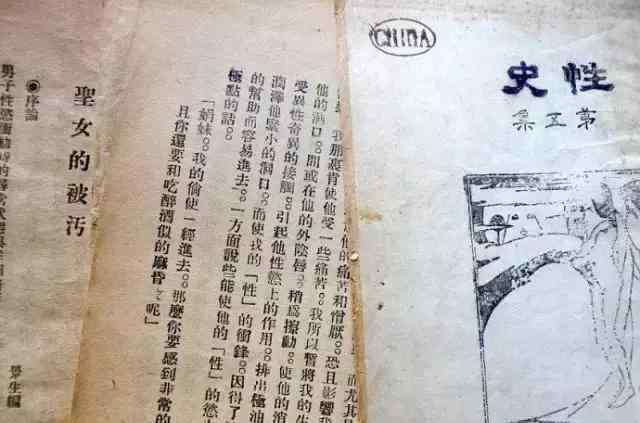 CHINA
性史
第五集
他的痛苦和憎厭。恐且影響我
我那裏肯使他受一些痛苦。我所以暫將我的生
他的洞口。間或在他的外陰唇。稍為撩動。使他的消
受異性奇異的接觸。引起他性慾上的作用。排出極油
潤澤他緊小的洞口。而使我的「性」的衝鋒。因得了
的幫助而容易進去。一方面說些能使他的「性」的慾
極點的話。
「娟妹。我的偷使一經進去。那麼你要感到非常的
且你還要和吃醉酒似的麻昏呢」
聖女的被汚
生編
◉序論
男子性慾衝動時的